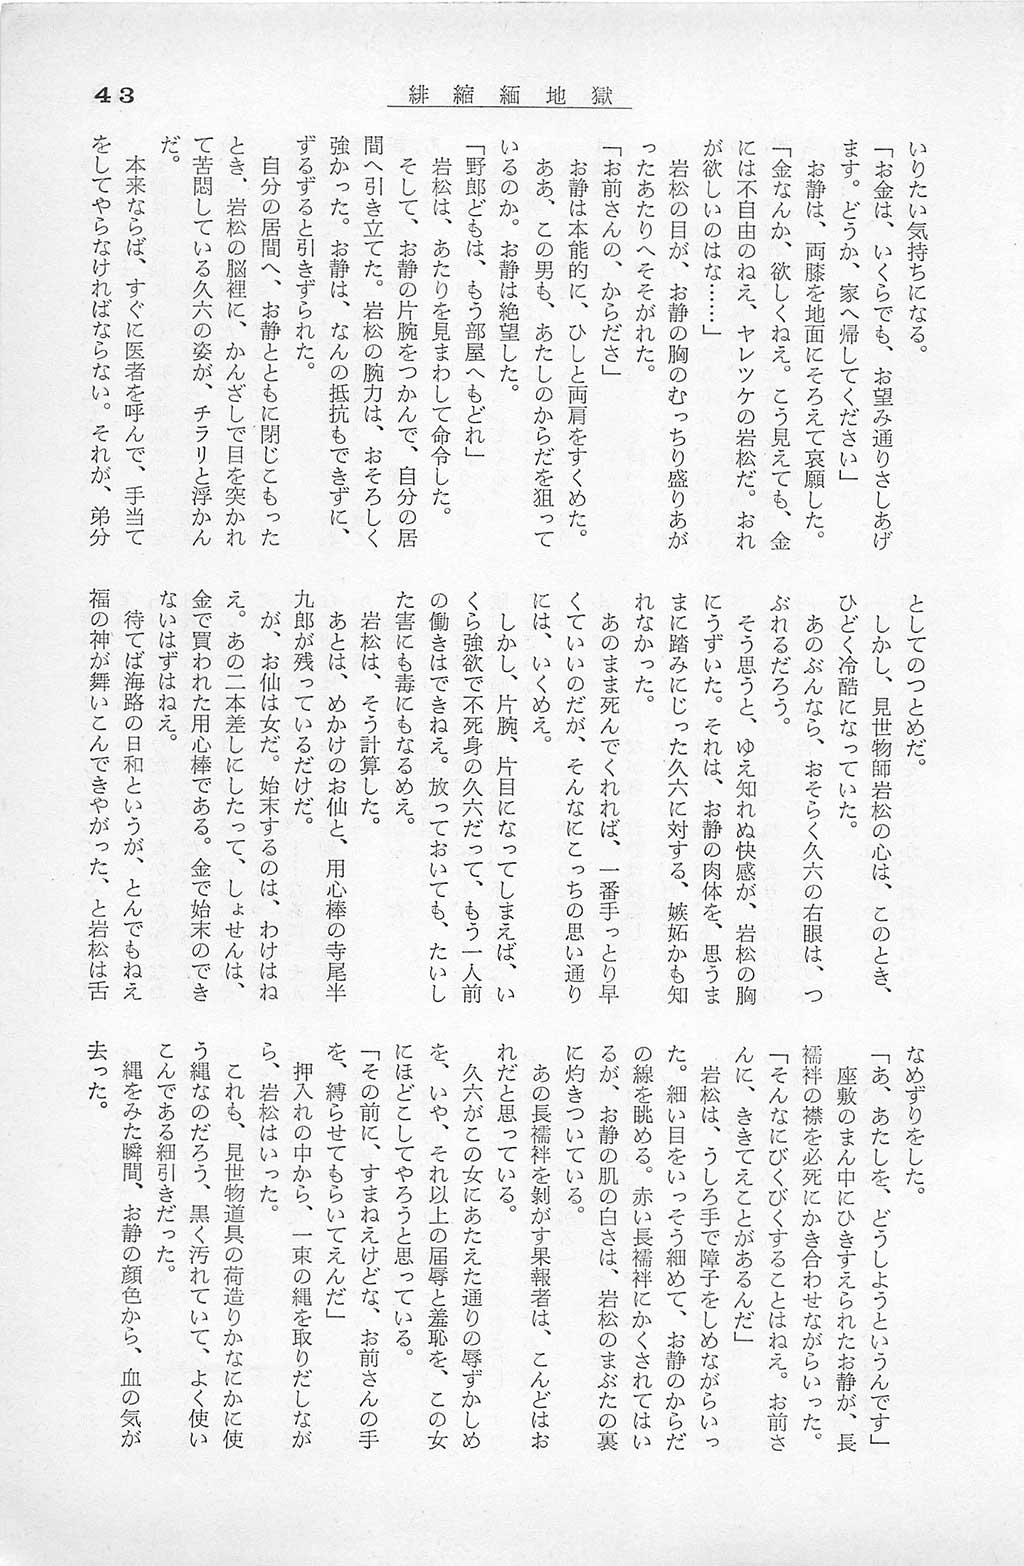 43
緋縮緬地獄
いりたい気持ちになる。
「お金は、いくらでも、お望み通りさしあげ
ます。どうか、家へ帰してください」
お静は、両膝を地面にそろえて哀願した。
「金なんか、欲しくねえ。こう見えても、金
には不自由のねえ、ヤレツケの岩松だ。おれ
が欲しいのはな……」
岩松の目が、お静の胸のむっちり盛りあが
ったあたりへそそがれた。
「お前さんの、からださ」
お静は本能的に、ひしと両肩をすくめた。
ああ、この男も、あたしのからだを狙って
いるのか。お静は絶望した。
「野郎どもは、もう部屋へもどれ」
岩松は、あたりを見まわして命令した。
そして、お静の片腕をつかんで、自分の居
間へ引き立てた。岩松の腕力は、おそろしく
強かった。お静は、なんの抵抗もできずに、
ずるずると引きずられた。
自分の居間へ、お静とともに閉じこもった
とき、岩松の脳裡に、かんざしで目を突かれ
て苦悶している久六の姿が、チラリと浮かん
だ。
本来ならば、すぐに医者を呼んで、手当て
をしてやらなければならない。それが、弟分
としてのつとめだ。
しかし、見世物師岩松の心は、このとき、
ひどく冷酷になっていた。
あのぶんなら、おそらく久六の右眼は、つ
ぶれるだろう。
そう思うと、ゆえ知れぬ快感が、岩松の胸
にうずいた。それは、お静の肉体を、思うま
まに踏みにじった久六に対する、嫉妬かも知
れなかった。
あのまま死んでくれれば、一番手っとり早
くていいのだが、そんなにこっちの思い通り
には、いくめえ。
しかし、片腕、片目になってしまえば、い
くら強欲で不死身の久六だって、もう一人前
の働きはできねえ。放っておいても、たいし
た害にも毒にもなるめえ。
岩松は、そう計算した。
あとは、めかけのお仙と、用心棒の寺尾半
九郎が残っているだけだ。
が、お仙は女だ。始末するのは、わけはね
え。あの二本差しにしたって、しょせんは、
金で買われた用心棒である。金で始末のでき
ないはずはねえ。
待てば海路の日和というが、とんでもねえ
福の神が舞いこんできやがった、と岩松は舌
なめずりをした。
「あ、あたしを、どうしようというんです」
座敷のまん中にひきすえられたお静が、長
襦袢の襟を必死にかき合わせながらいった。
「そんなにびくびくすることはねえ。お前さ
んに、ききてえことがあるんだ」
岩松は、うしろ手で障子をしめながらいっ
た。細い目をいっそう細めて、お静のからだ
の線を眺める。赤い長襦袢にかくされてはい
るが、お静の肌の白さは、岩松のまぶたの裏
に灼きついている。
あの長襦袢を剝がす果報者は、こんどはお
れだと思っている。
久六がこの女にあたえた通りの辱ずかしめ
を、いや、それ以上の屈辱と羞恥を、この女
にほどこしてやろうと思っている。
「その前に、すまねえけどな、お前さんの手
を、縛らせてもらいてえんだ」
押入れの中から、一束の縄を取りだしなが
ら、岩松はいった。
これも、見世物道具の荷造りかなにかに使
う縄なのだろう、黒く汚れていて、よく使い
こんである細引きだった。
縄をみた瞬間、お静の顔色から、血の気が
去った。